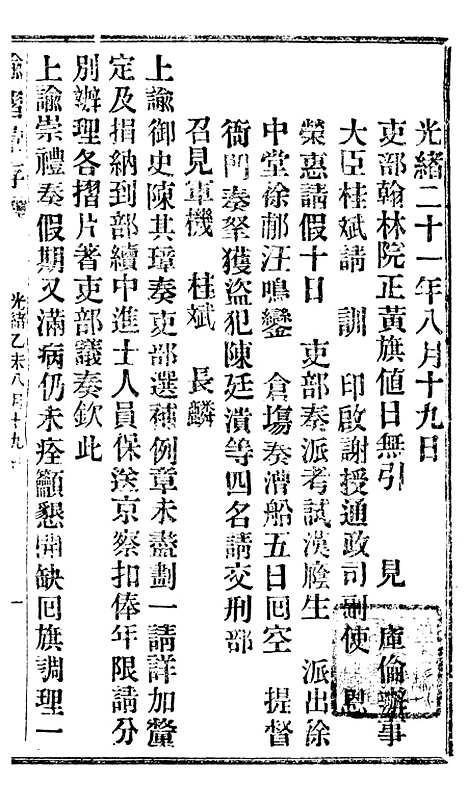 光緒二十一年八月十九日
吏部翰林院正黃旗值日無引　見　庫倫辦事
大臣桂斌請　訓　印啟謝授通政司副使　恩
榮惠請假十日　吏部奏派考試漢謄生　派出徐
中堂徐郙汪鳴鑾　倉塲奏漕船五日回空　提督
衙門奏拏獲盜犯陳廷潰等四名請交刑部
召見軍機　桂斌　長麟
上諭御史陳其璋奏吏部選補例章未盡劃一請詳加釐
定及捐納到部續中進士人員保送京察扣俸年限請分
別辦理各摺片著吏部議奏欽此
上諭崇禮奏假期又滿病仍未痊籲懇開缺回旗調理一
諭摺彙存　光緒乙未八月十九　一